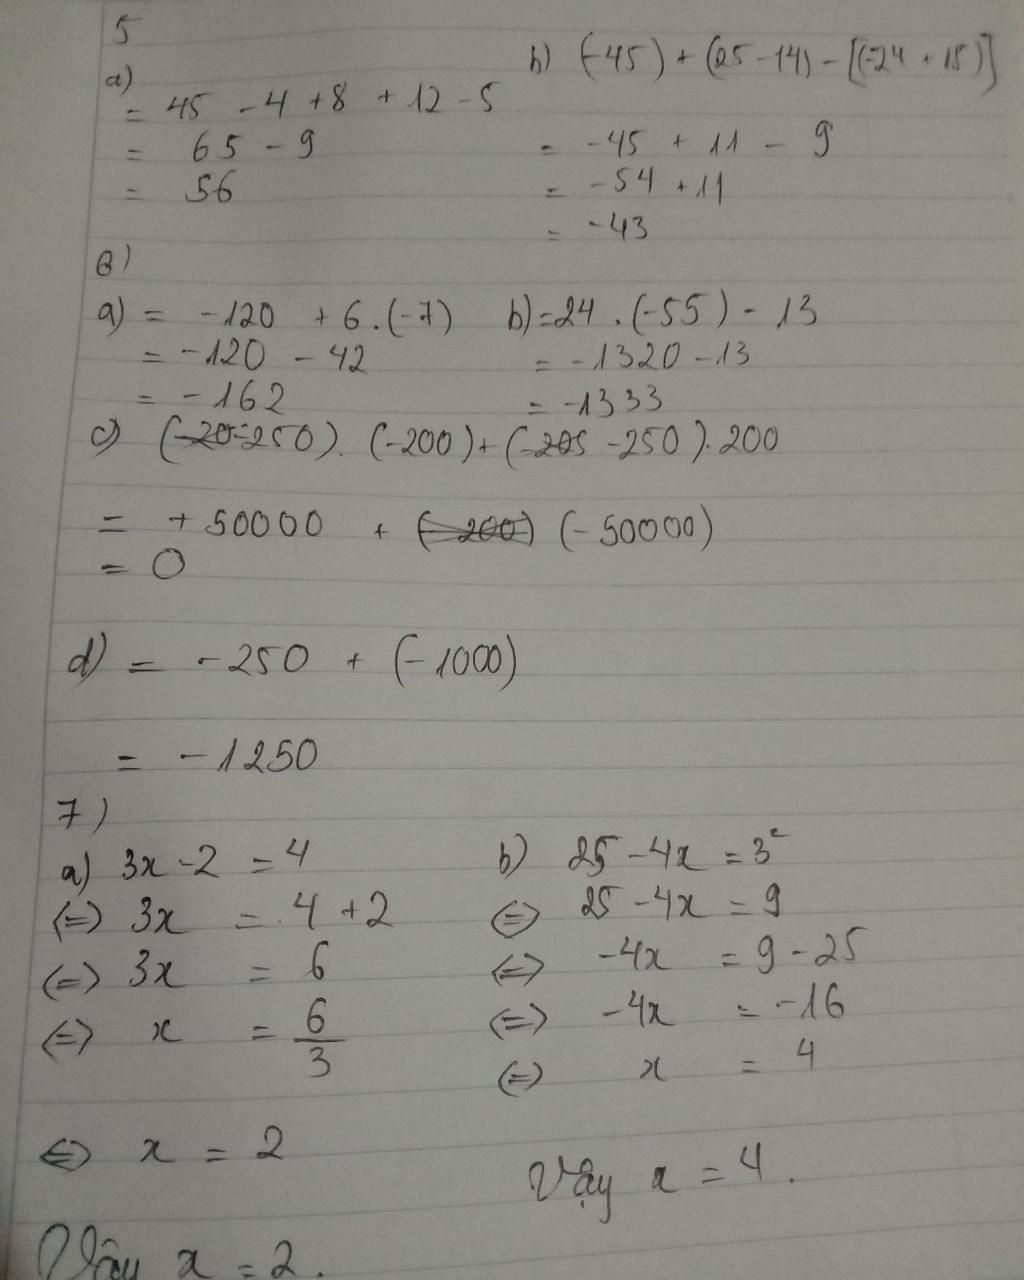 5
a)
= 45 - 4 + 8 + 12 - 5
= 65 - 9
= 56
b) (-45) + (25 - 14) - [(-24 + 15)]
= -45 + 11 - 9
= -54 + 11
= -43
6)
a) = -120 + 6.(-7)
= -120 - 42
= -162
b) = 24 . (-55) - 13
= -1320 - 13
= -1333
c) (-20-250). (-200) + (-205 - 250). 200
= + 50000 + (-200) (-50000)
= 0
d) = -250 + (-1000)
= -1250
7)
a) 3x - 2 = 4
<=> 3x = 4 + 2
<=> 3x = 6
<=> x = 6/3
<=> x = 2
Vậy x = 2.
b) 25 - 4x = 3²
<=> 25 - 4x = 9
<=> -4x = 9 - 25
<=> -4x = -16
<=> x = 4
Vậy x = 4.